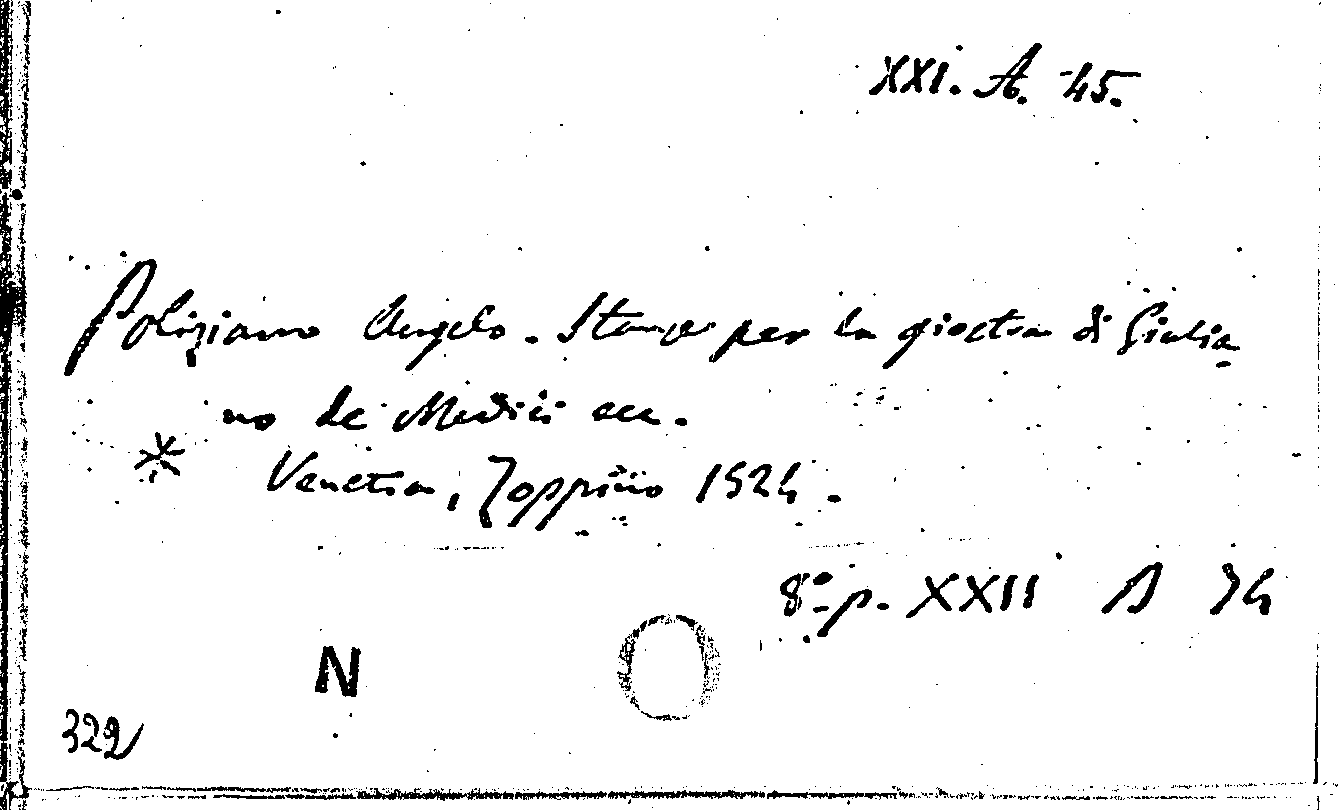 XXI. A. 45.
Poliziano Angelo. Stanze per la giostra di Giulia-
no de Medici ecc.
* Venetia, Zoppino 1524.
8.° p. XXII A 34
N
O
329